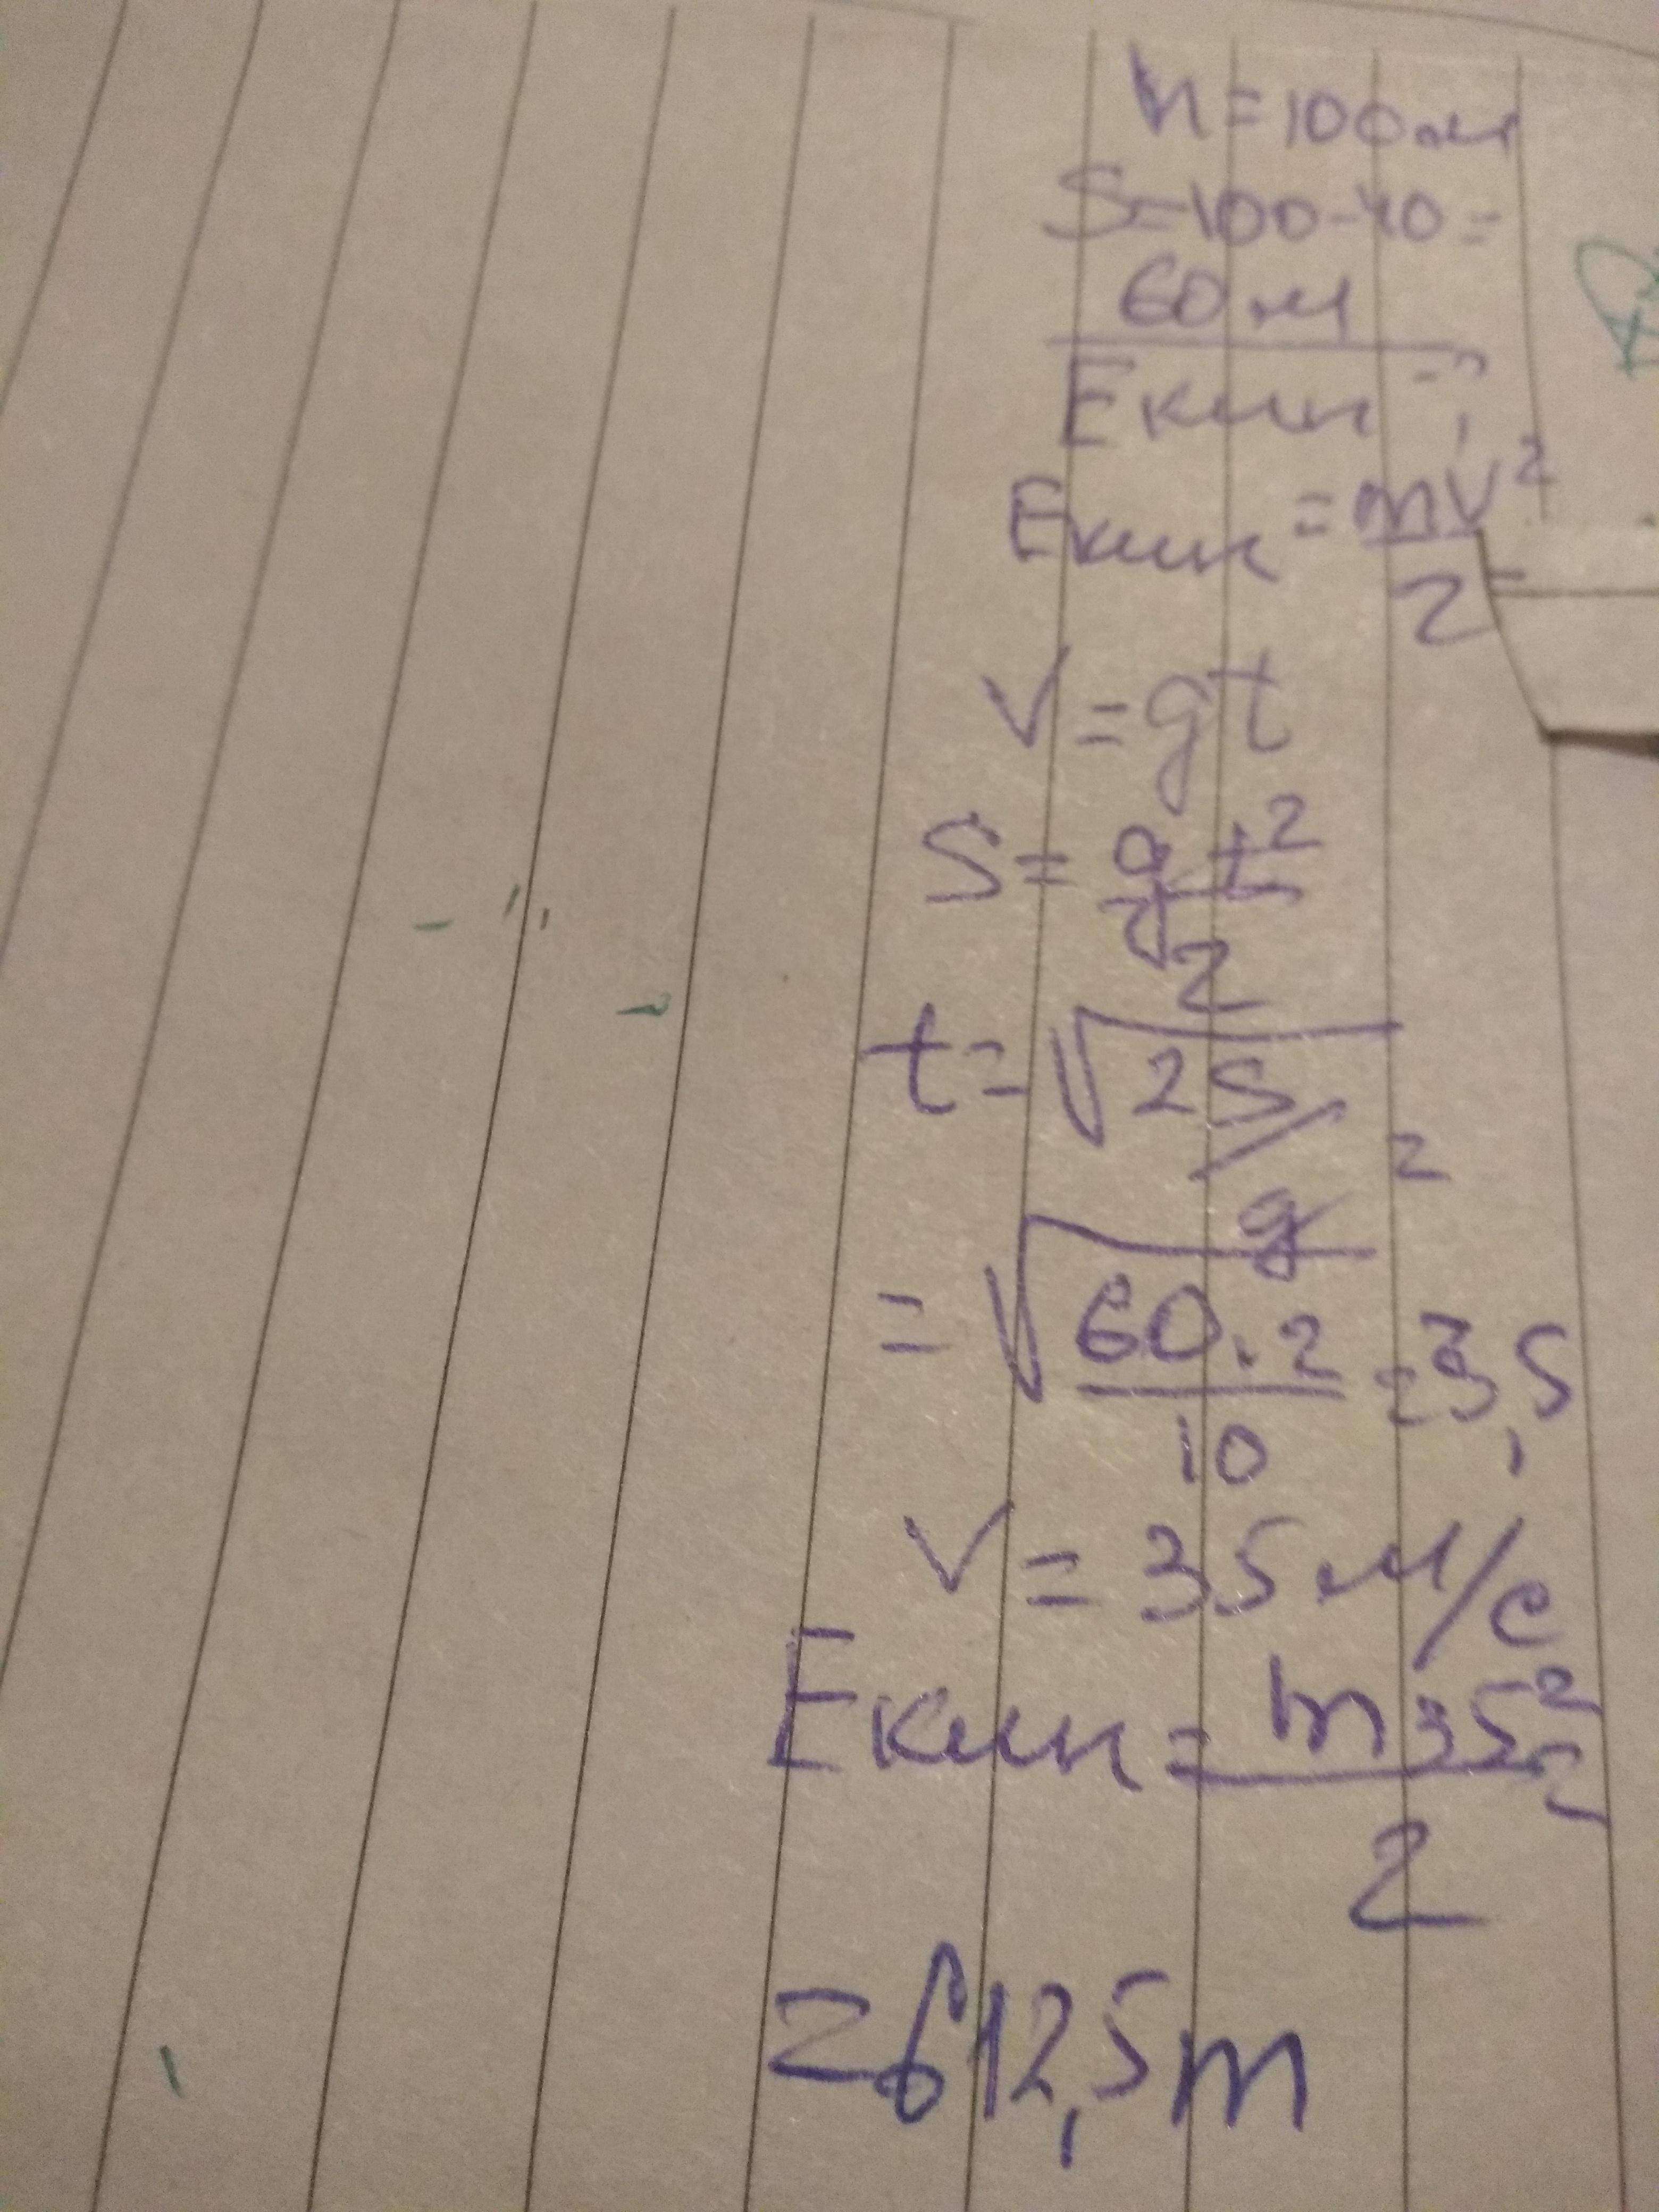 h = 100 м
S = 100 - 40 =
60 м
Екин - ?
Екин = mv²
2
v = gt
S = gt²
2
t = √2S/
g
= √60 · 2 = 3,5
10
v = 35 м/с
Екин = m35²
2
= 612,5 m